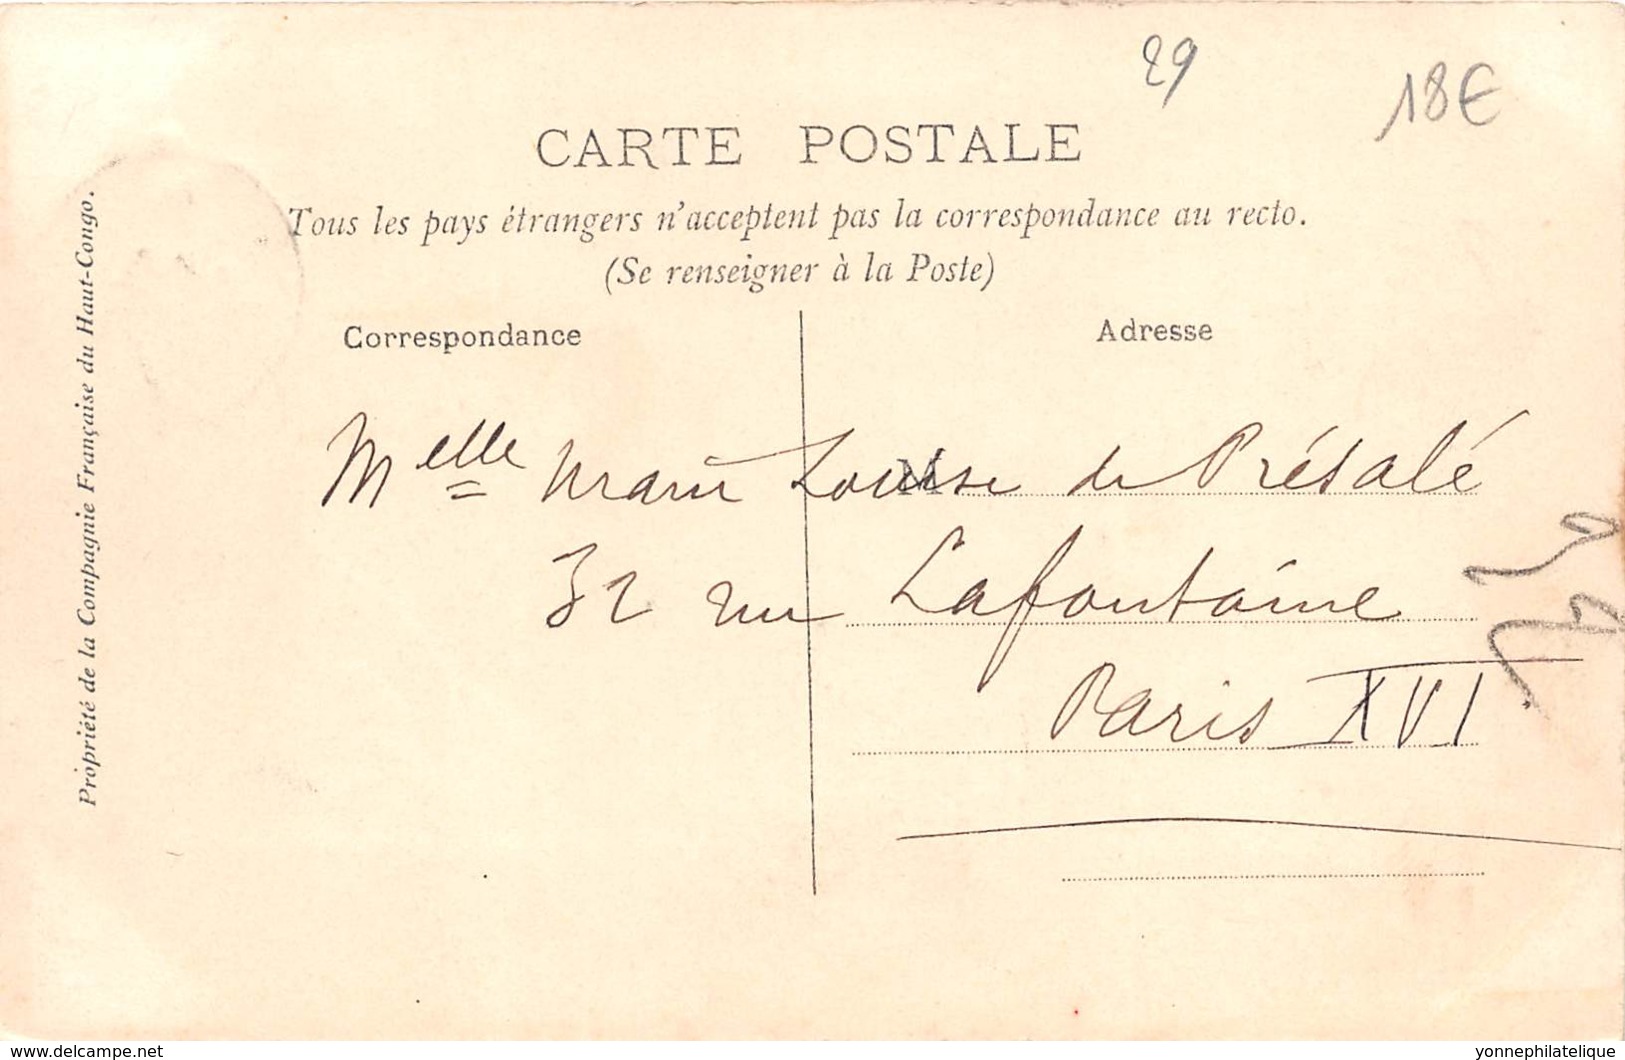 29
18€
CARTE POSTALE
Tous les pays étrangers n'acceptent pas la correspondance au recto.
(Se renseigner à la Poste)
Correspondance
Adresse
Propriété de la Compagnie Française du Haut-Congo.
Melle Marie Louise de Présalé
32 rue Lafontaine
Paris XVI
www.delcampe.net
yonnephilatelique